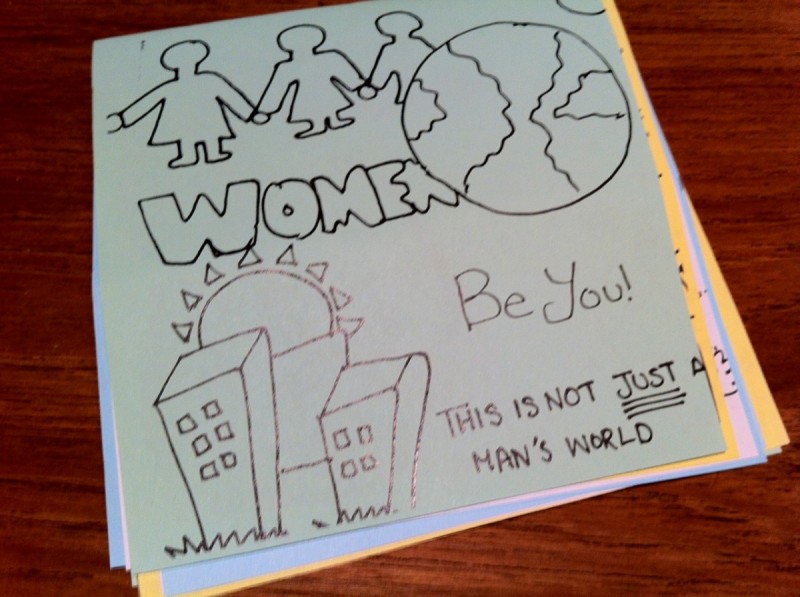 WOMEN
Be You!
THIS IS NOT JUST A
MAN'S WORLD